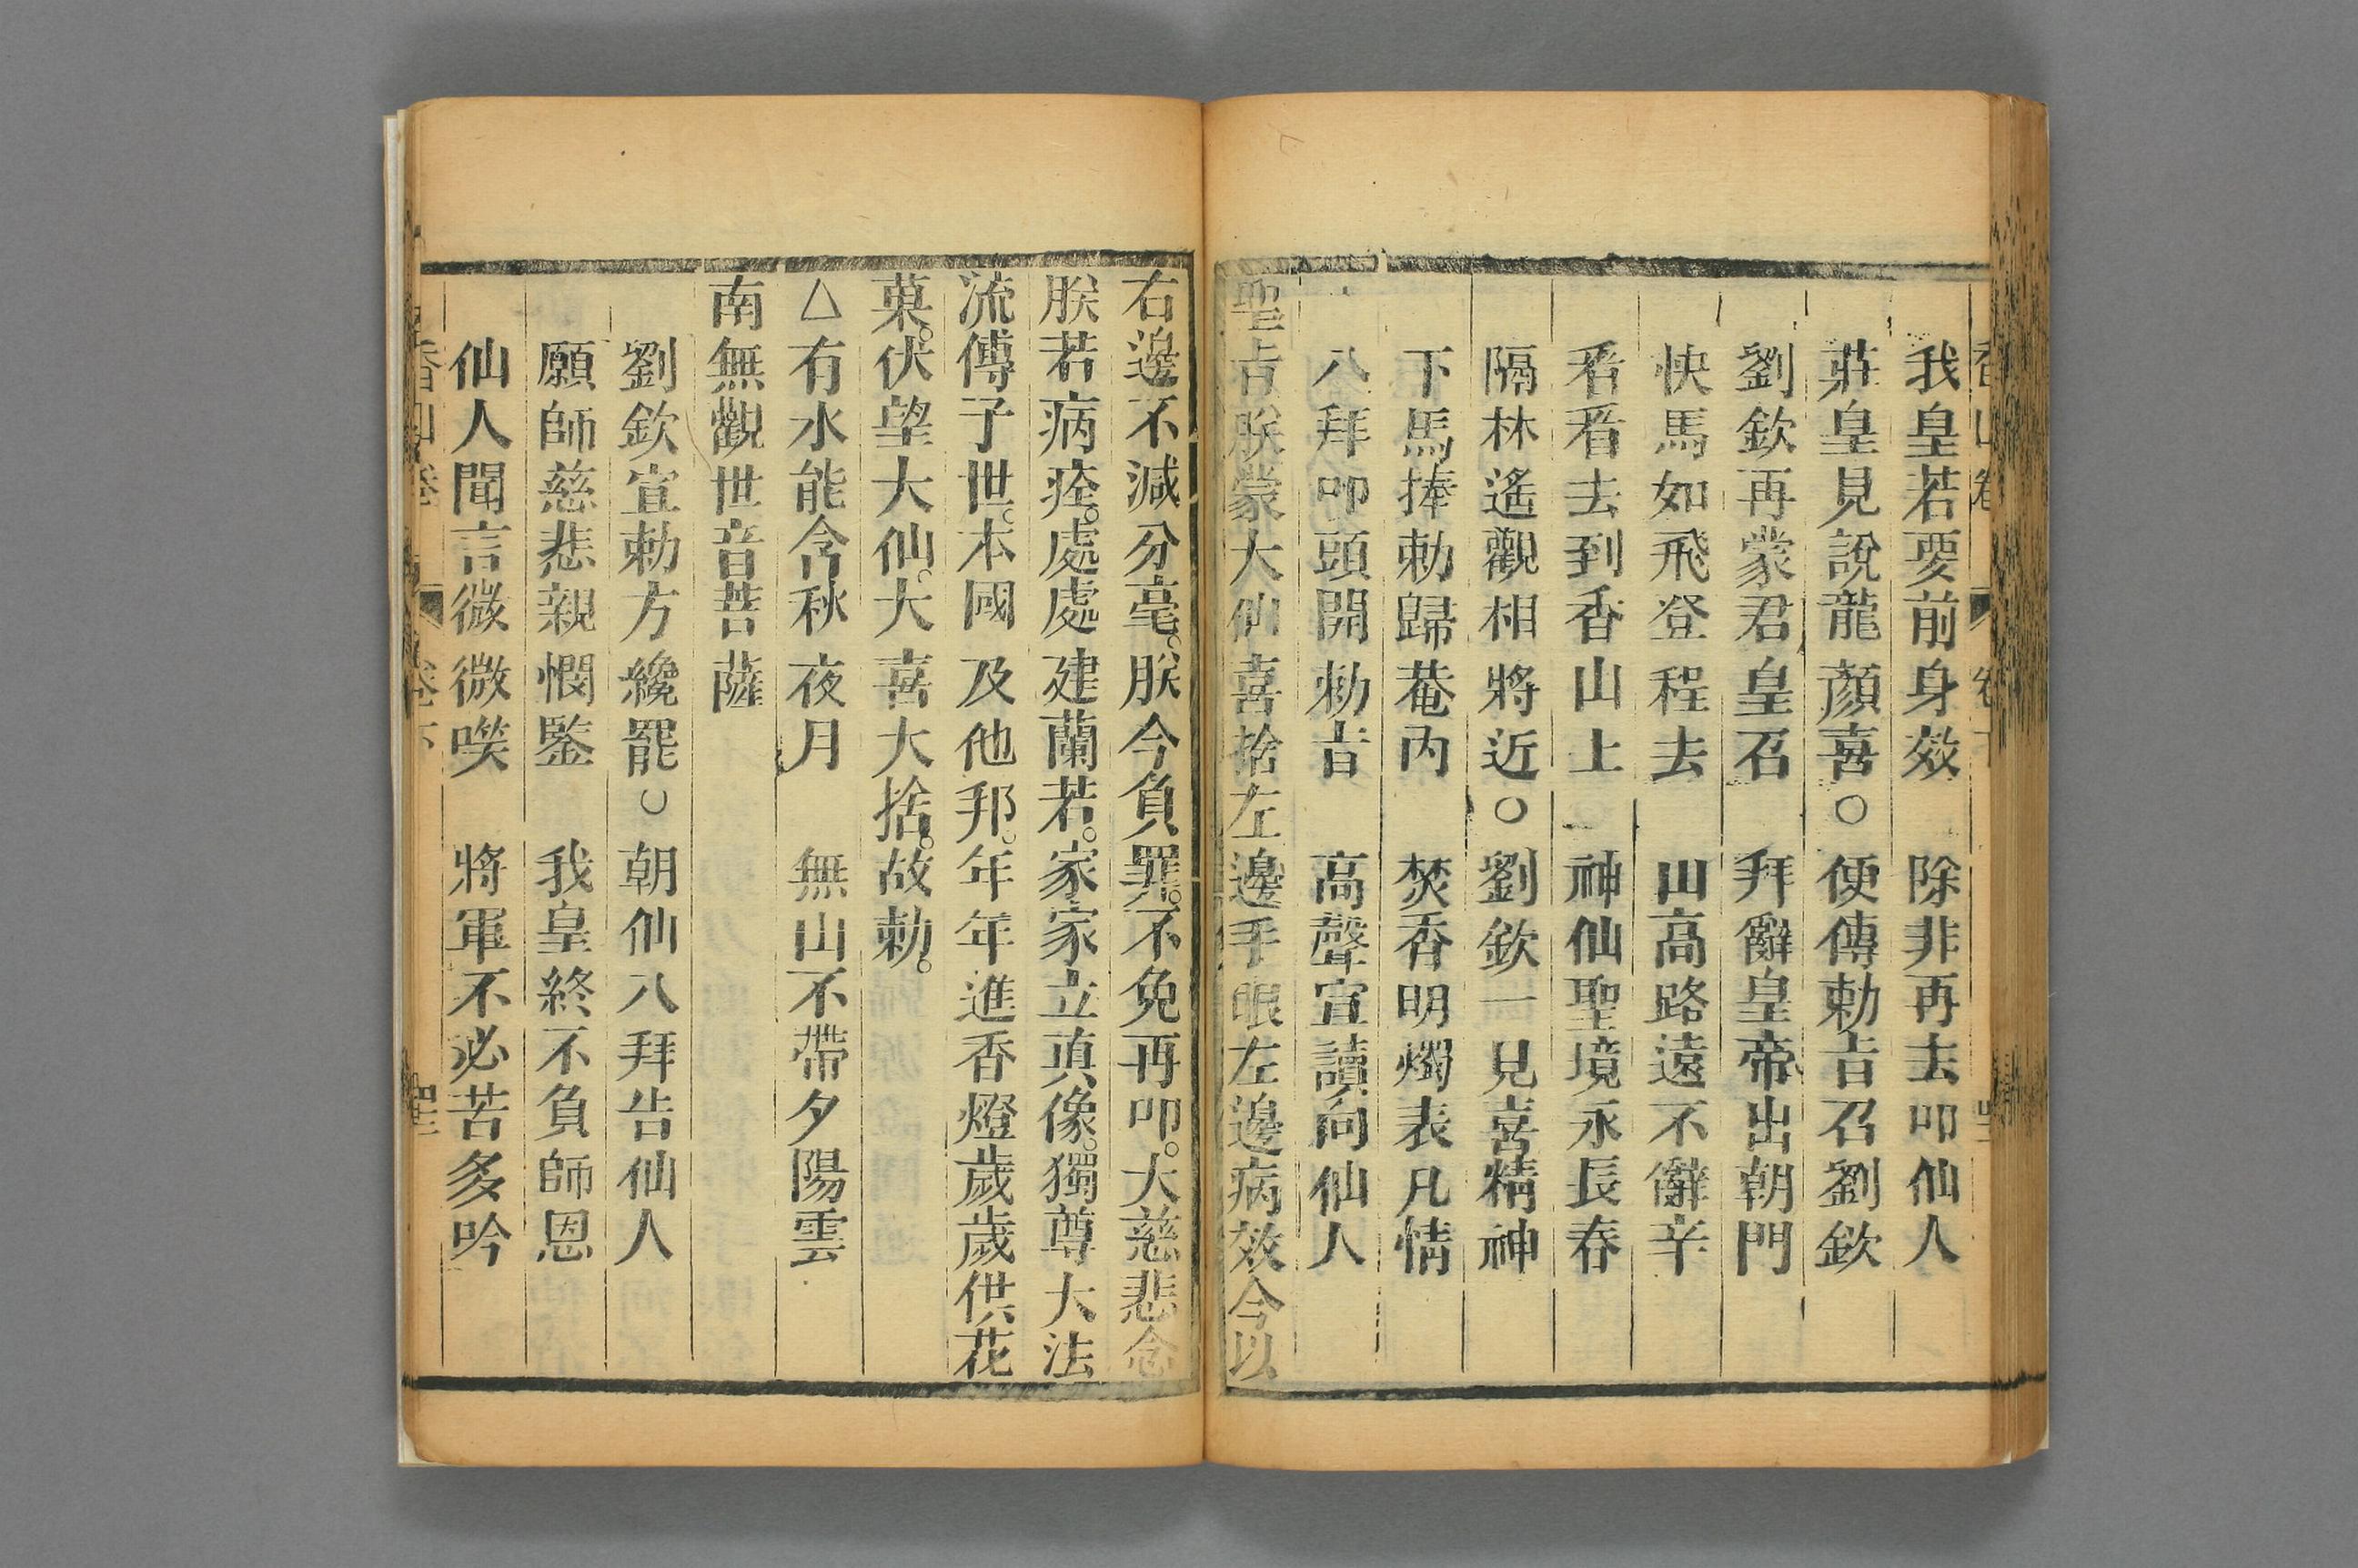 香山卷 卷下
我皇若要前身效　除非再去叩仙人
莊皇見說龍顏喜○便傳勅旨召劉欽
劉欽再蒙君皇召　拜辭皇帝出朝門
快馬如飛登程去　山高路遠不辭辛
看看去到香山上　神仙聖境永長春
隔林遙觀相將近○劉欽一見喜精神
下馬捧勅歸菴內　焚香明燭表凡情
八拜叩頭開勅旨　高聲宣讀向仙人
聖旨朕蒙大仙喜捨左邊手眼左邊病效今以
右邊不減分毫。朕今負罪。不免再叩。大慈悲念
朕若病痊。處處建蘭若。家家立真像。獨尊大法
流傳子世。本國及他邦。年年進香燈歲歲供花
菓。伏望大仙。大喜大捨。故勅。
△有水能含秋夜月　無山不帶夕陽雲
南無觀世音菩薩
劉欽宣勅方纔罷○朝仙八拜告仙人
願師慈悲親憫鑒　我皇終不負師恩
仙人聞言微微咲　將軍不必苦多吟
香山卷 卷下